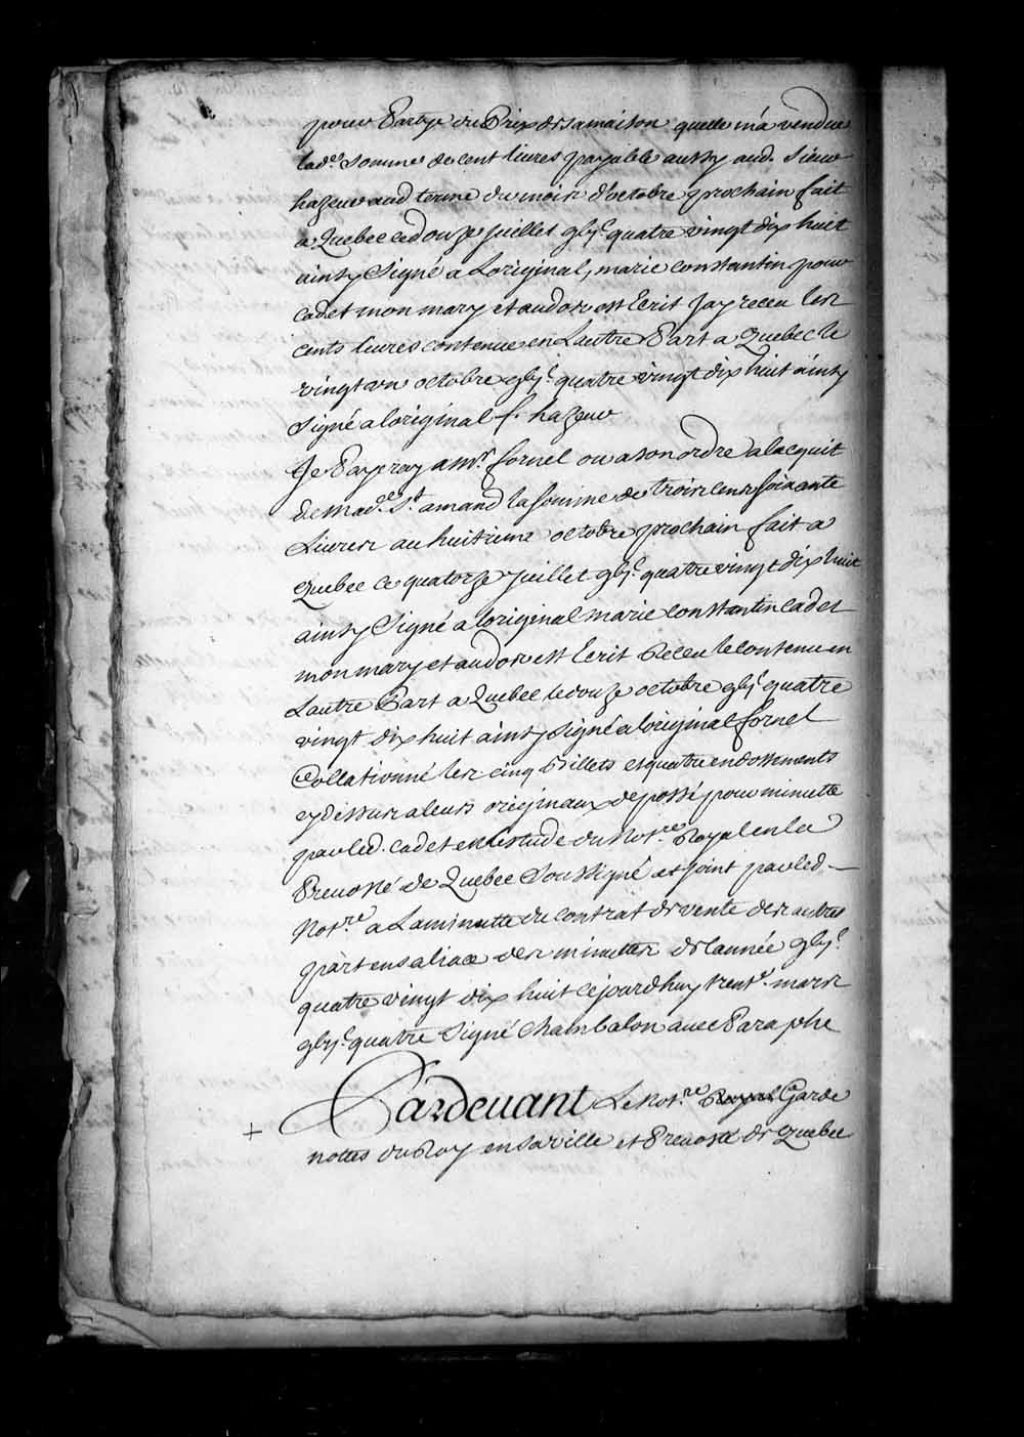 pour Partye du Prix de sa maison quelle m'a vendue
lad.e Somme de cent livres payable aussy aud. Sieur
hazeur aud terme du mois d'octobre prochain fait
a Quebec ce douze juillet gbj.c quatre vingt dix huit
ainsy Signé a Loriginal, marie constantin pour
cadet mon mary et au dos est Ecrit Jay receu les
cents livres contenue en Lautre Part a Quebec le
vingt un octobre gbj.c quatre vingt dix huit ainsy
Signé a loriginal f. hazeur
Je Payeray a mr. fornel ou a son ordre a lacquit
de mad.e St. amand la somme de trois cens soixante
Livres au huitieme octobre prochain fait a
Quebec ce quatorze juillet gbj.c quatre vingt dix huit
ainsy Signé a loriginal marie constantin cadet
mon mary et au dos est Ecrit Receu le contenu en
Lautre Part a Quebec le douze octobre gbj.c quatre
vingt dix huit ainsy signé a loriginal fornel
Collationné les cinq billets et quatre endossements
cy dessus a leurs originaux deposé pour minutte
par led. cadet en lestude du Not.re Royal en la
Prevosté de Quebec Soussigné et joint par led.
Not.re a La minutte du contrat de vente des autres
parts en saliace des minuttes de lannée gbj.c
quatre vingt dix huit cejourdhuy trent.e mars
gbj.c quatre Signé Chambalon avec Paraphe
+ Pardevant Le Not.re Royal Garde
nottes du Roy en sa ville et Prevosté de Quebec